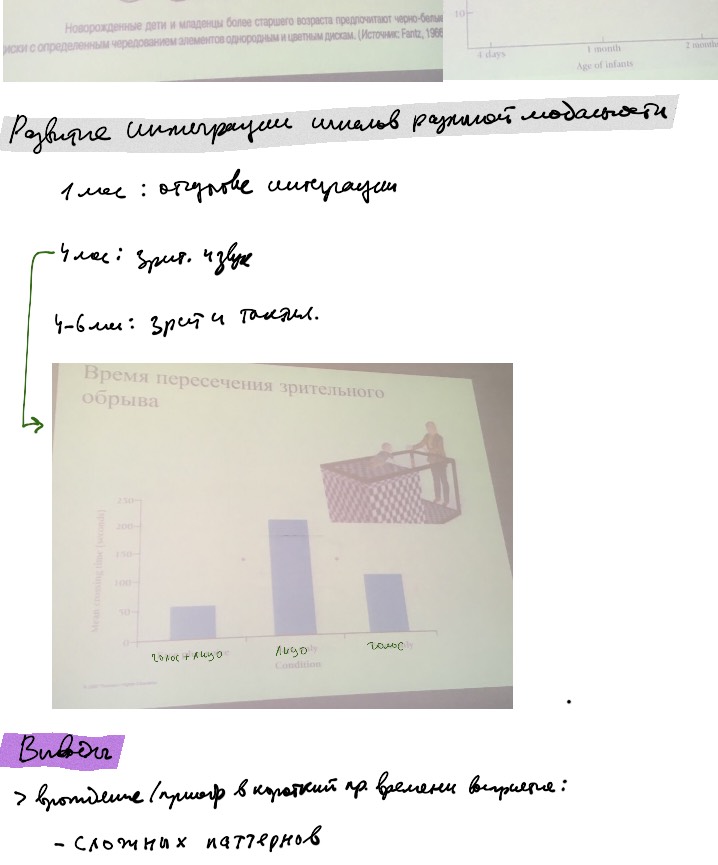 Новорожденные дети и младенцы более старшего возраста предпочитают черно-белые
диски с определенным чередованием элементов однородным и цветным дискам. (Источник: Fantz, 1966
10
4 days
1 month
2 months
Age of infants
Развитие интеграции разной модальности
1 мес : отсутствие интеграции
4 мес : зрит. и звук
4-6 мес : зрит и тактил.
Время пересечения зрительного
обрыва
250
200
150
100
50
0
Mean crossing time (seconds)
голос + лицо
лицо
голос
Condition
Выводы
> врождение / в короткий пр. времени восприятие :
- сложных паттернов